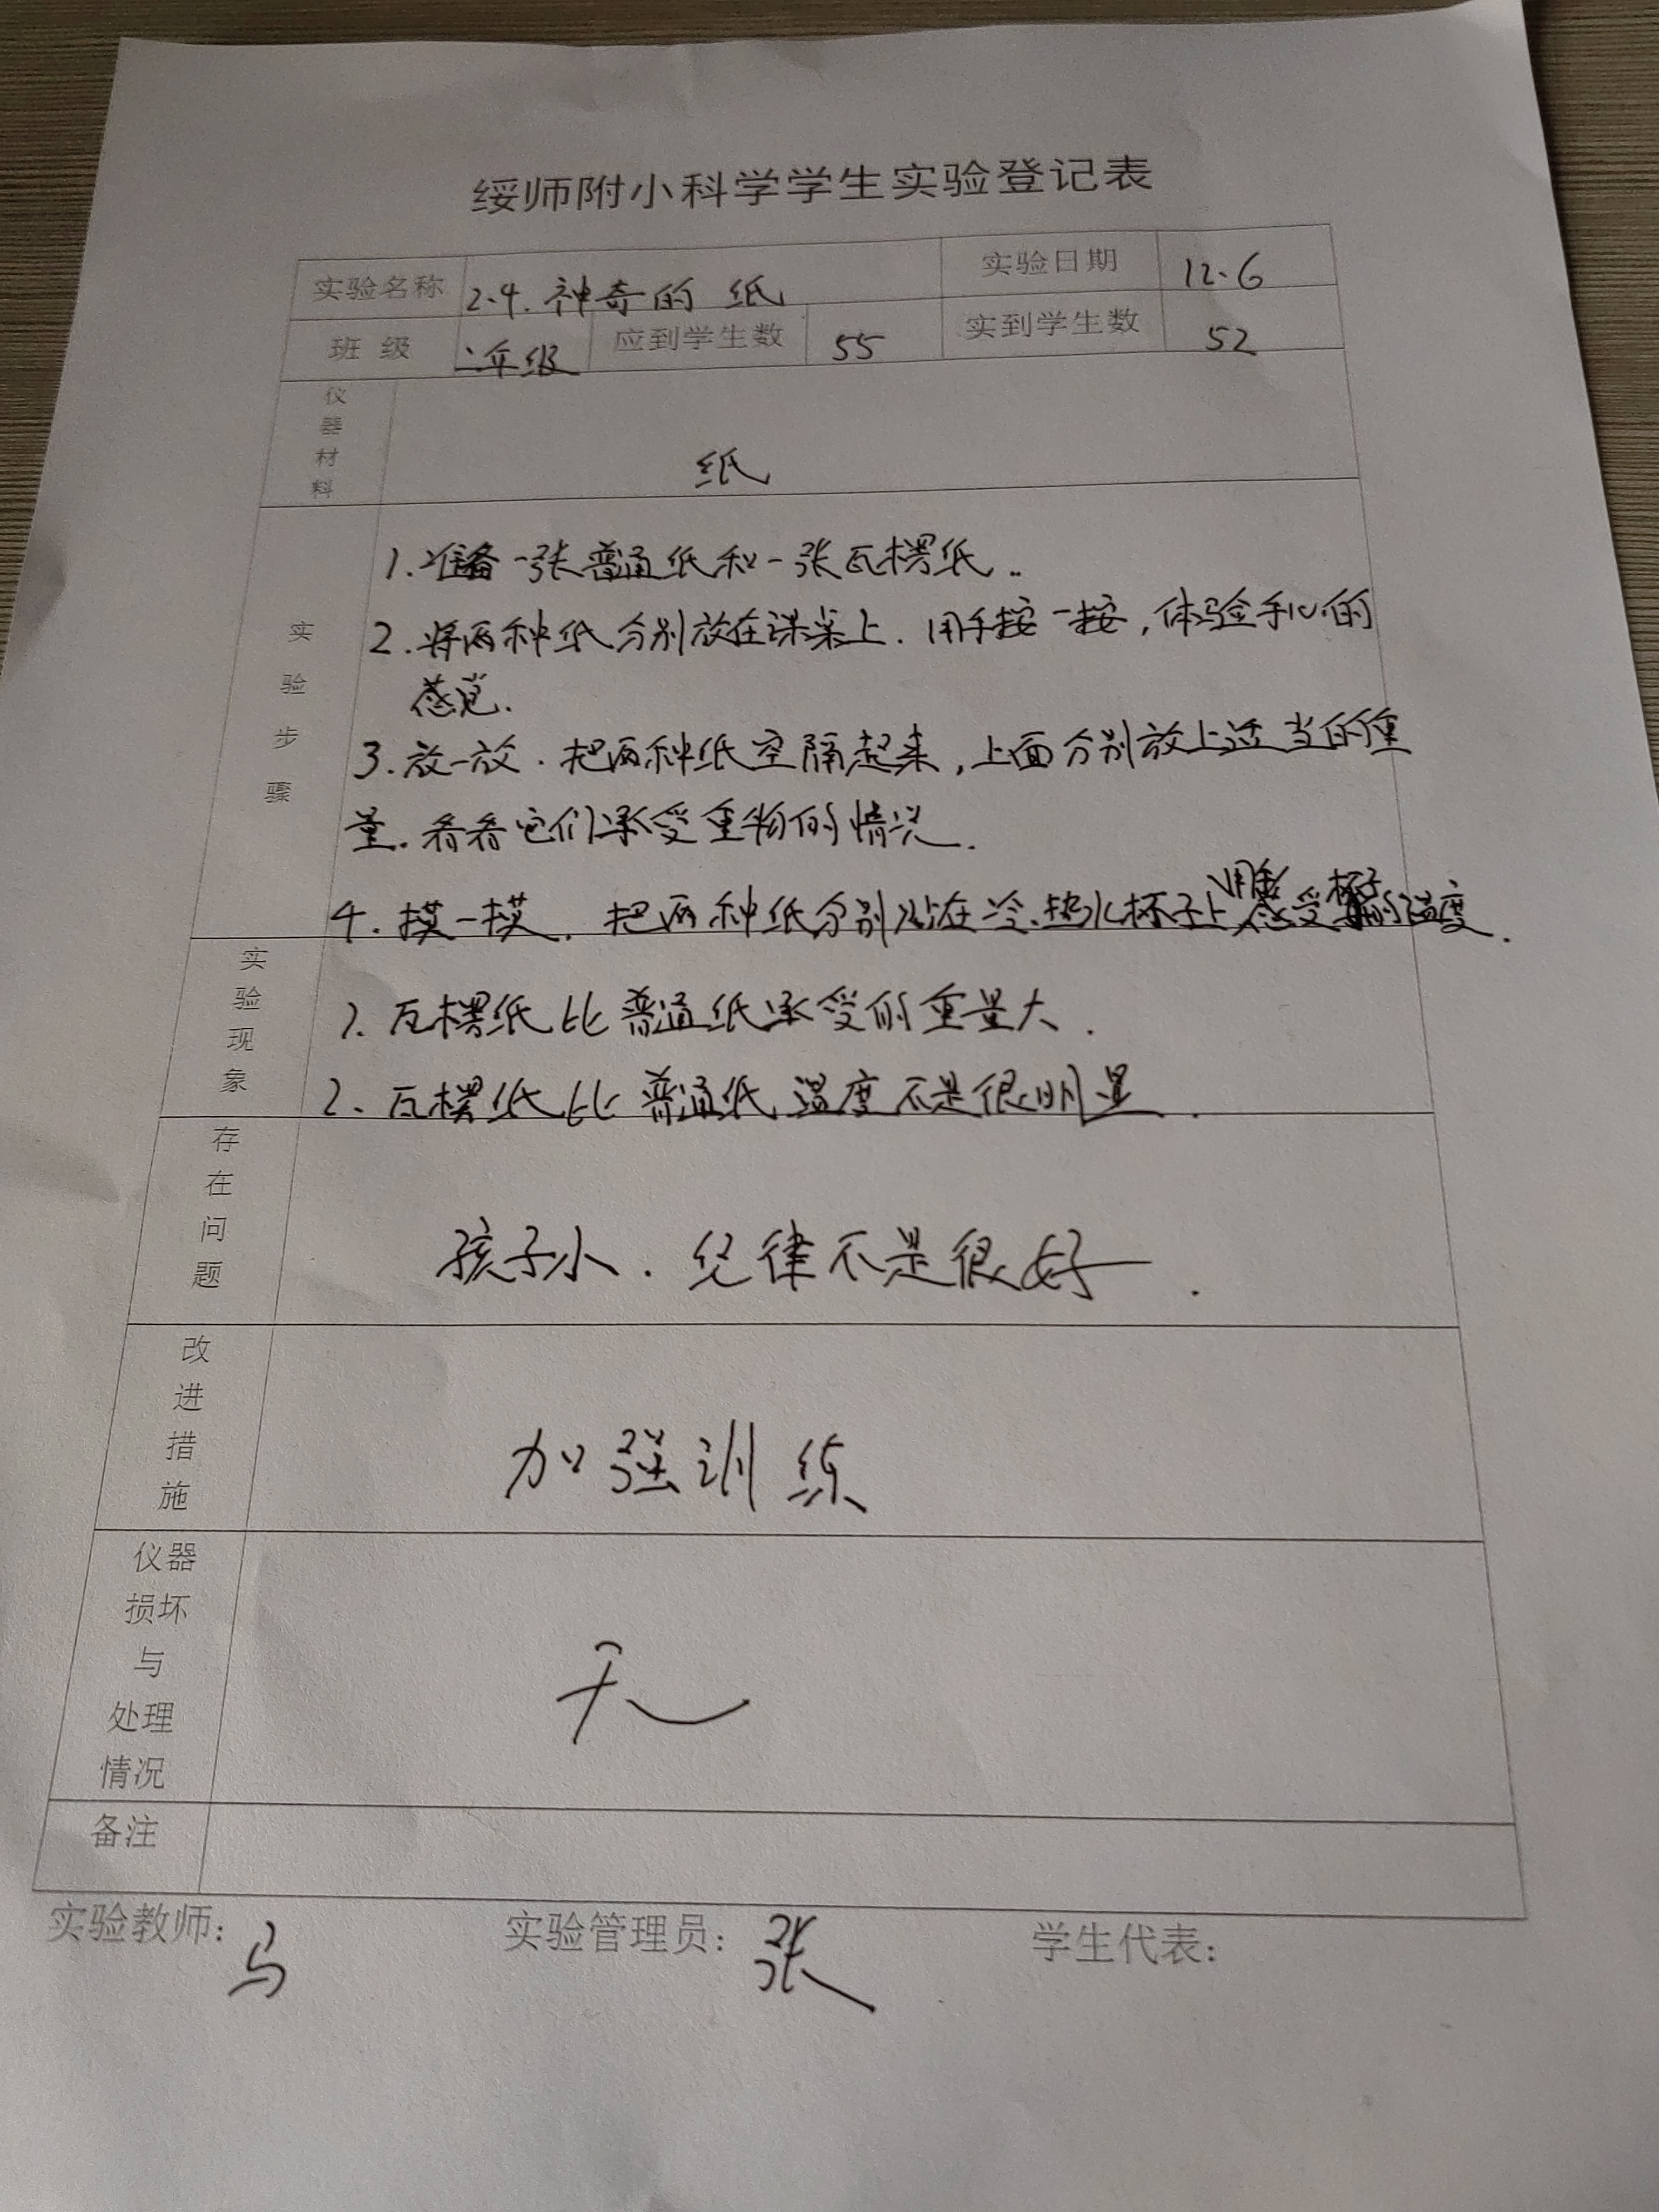 绥师附小科学学生实验登记表
实验名称 2.4.神奇的 纸 实验日期 12.6
班 级 二年级 应到学生数 55 实到学生数 52
仪器材料 纸
实验步骤
1.准备一张普通纸和一张瓦楞纸..
2.将两种纸分别放在课桌上.用手按一按,体验手心的
感觉.
3.放一放.把两种纸空隔起来,上面分别放上适当的重
量.看看它们承受重物的情况.
4.摸一摸.把两种纸分别贴在冷.热水杯子上,用手感受杯子的温度.
实验现象
1.瓦楞纸比普通纸承受的重量大.
2.瓦楞纸比普通纸温度不是很明显.
存在问题 孩子小.纪律不是很好.
改进措施 加强训练
仪器损坏与处理情况 无
备注
实验教师:马 实验管理员:张 学生代表: